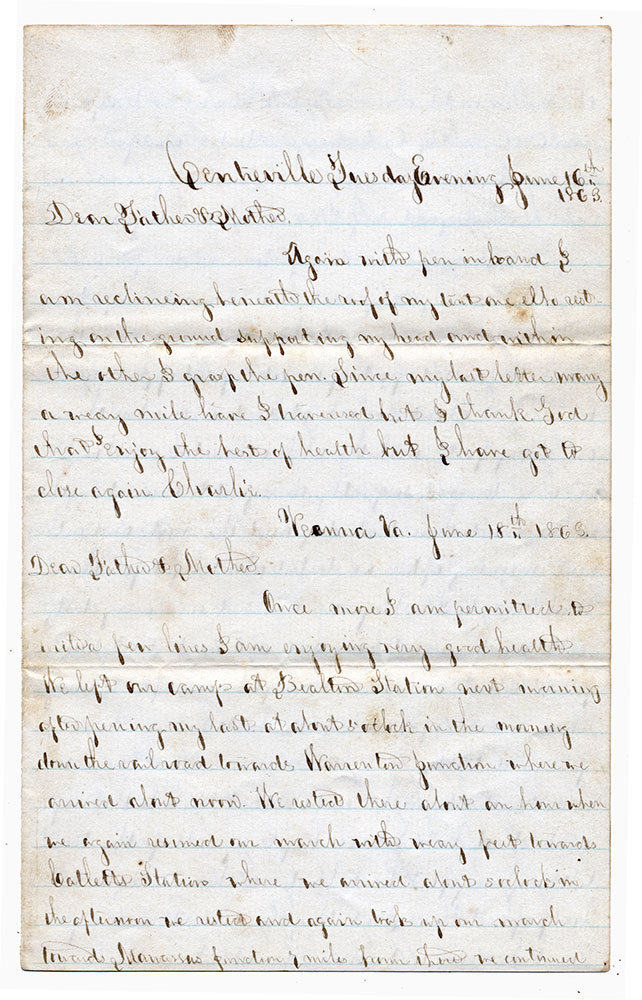 Centreville Tuesday Evening June 16th
1863.
Dear Father & Mother.
Again with pen in hand I
am reclineing beneath the roof of my tent one elbo rest-
ing on the ground supporting my head and within
the other I grasp the pen. Since my last letter many
a weary mile have I traversed but I thank God
that I enjoy the best of health but I have got to
close again Charlie.
Vienna Va. June 18th 1863.
Dear Father & Mother.
Once more I am permitted to
write a few lines I am enjoying very good health
We left our camp at Bealton Station next morning
after pening my last at about 5 oclock in the morning
down the railroad towards Warrenton Junction where we
arrived about noon. We rested there about an hour when
we again resumed our march with weary feet towards
Catletts Station where we arrived about 5 oclock in
the afternoon we rested and again took up our march
toward Manassas Junction 7 miles from there we continued